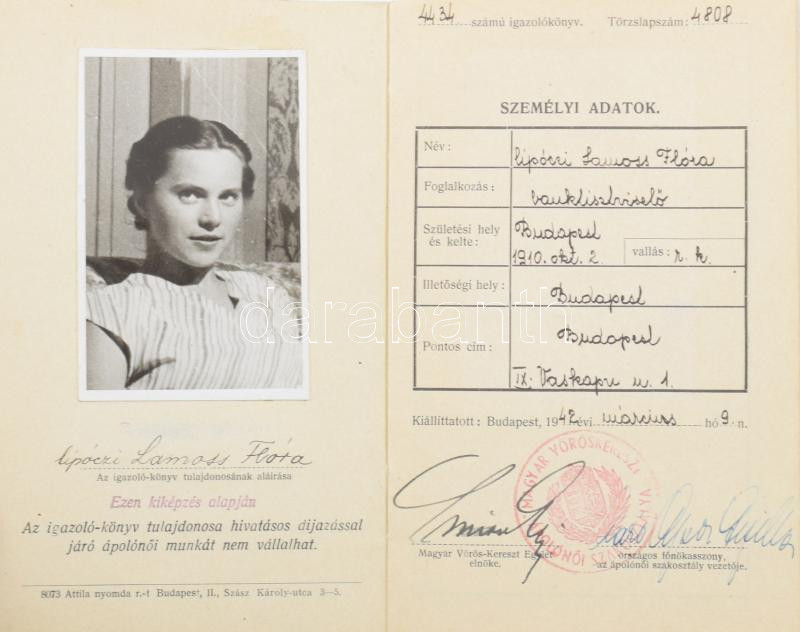 lipóczi Lamoss Flóra
Az igazoló-könyv tulajdonosának aláirása
Ezen kiképzés alapján
Az igazoló-könyv tulajdonosa hivatásos dijazással
járó ápolónői munkát nem vállalhat.
8073 Attila nyomda r.-t Budapest, II., Szász Károly-utca 3—5.
4434 számú igazolókönyv. Törzslapszám: 4808
SZEMÉLYI ADATOK.
Név: lipóczi Lamoss Flóra
Foglalkozás: banktisztviselő
Születési hely és kelte: Budapest
1910. okt. 2. vallás: r. k.
Illetőségi hely: Budapest
Pontos cím: Budapest
IX. Vaskapu u. 1.
Kiállittatott: Budapest, 1942 évi március hó 9. n.
MAGYAR VÖRÖSKERESZT
ÁPOLÓNŐI
Magyar Vörös-Kereszt Egylet
elnöke.
országos főnökasszony,
az ápolónői szakosztály vezetője.
darabanth